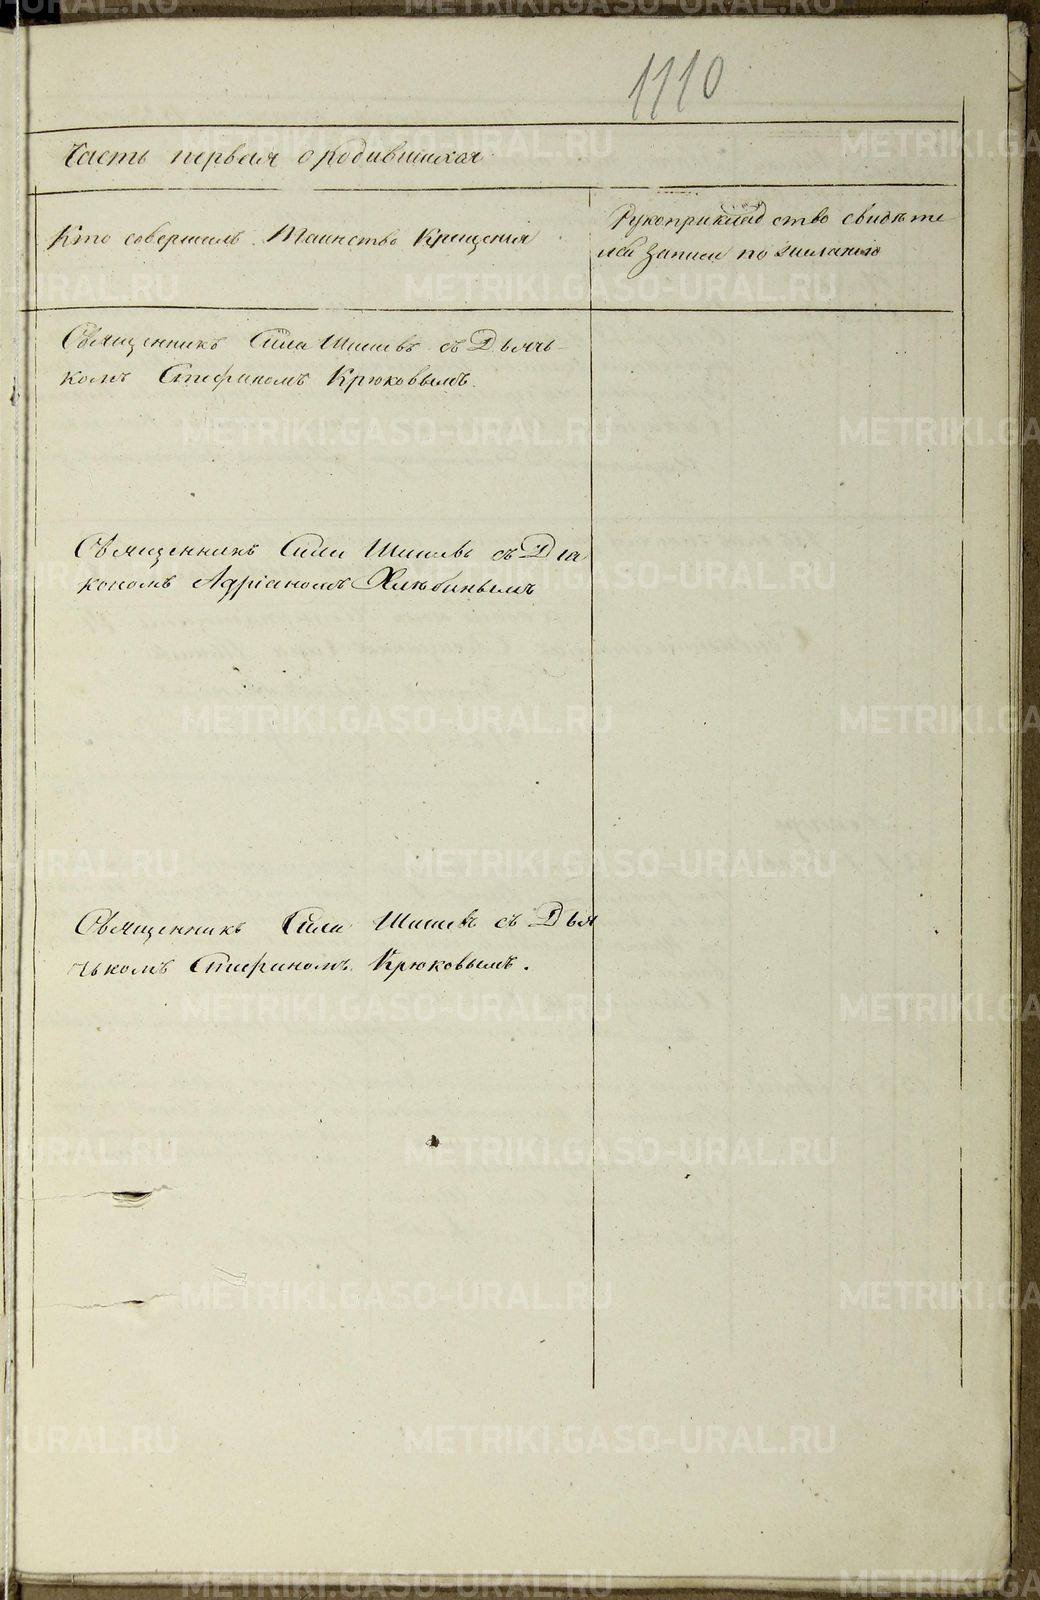 1110
Часть первая о родившихся
Кто совершалъ Таинство Крещенiя
Рукоприкладство свидѣте
лей записи по желанiю
Священникъ Сила Шишевъ съ Дьячь-
комъ Стефаномъ Крюковымъ.
Священникъ Сила Шишевъ съ Дiа
кономъ Адрiаномъ Хлѣбинымъ
Священникъ Сила Шишевъ съ Дья
чькомъ Стефаномъ Крюковымъ.
METRIKI.GASO-URAL.RU